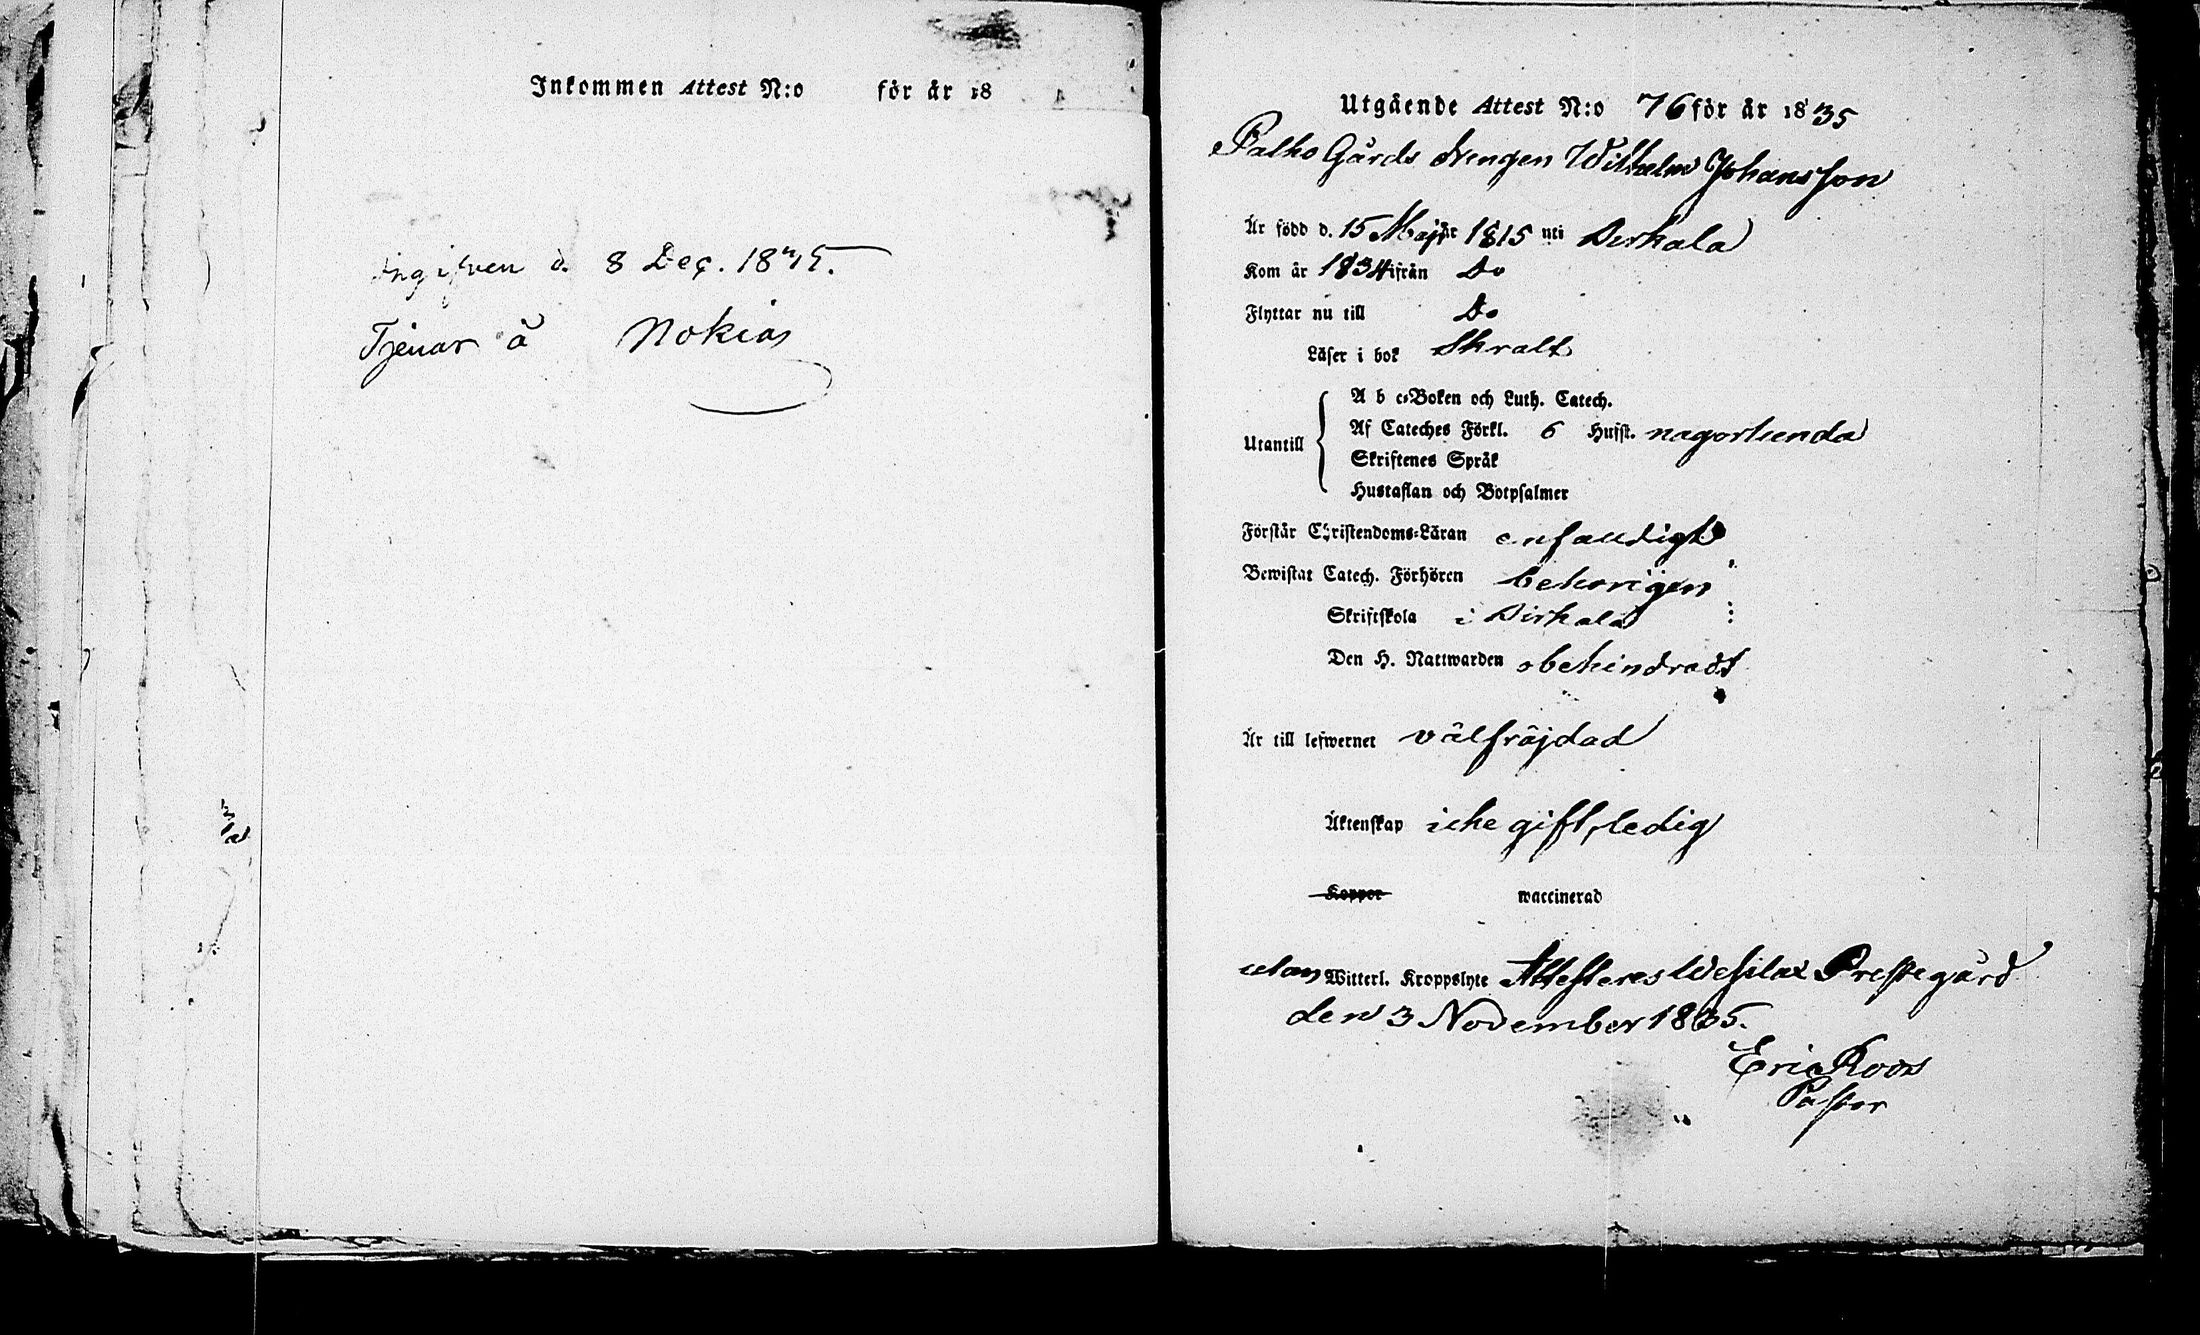 Inkommen Attest N:o för år 18
Ingifven d. 8 Dec. 1835.
Tjenar å Nokias
Utgående Attest N:o 76 för år 1835
Palho Gårds drengen Wilhelm Johansson
Är född d. 15 Maji år 1815 uti Birkala
Kom år 1834 ifrån Do
Flyttar nu till Do
Läser i bok Skralt
A b c-Boken och Luth. Catech.
Utantill Af Cateches Förkl. 6 Hufst. någorlunda
Skriftenes Språk
Hustaflan och Botpsalmer
Förstår Christendoms-Läran enfaldigt
Bewistat Catech. Förhören behörigen
Skriftskola i Birkala
Den H. Nattwarden obehindradt
Är till lefwernet välfräjdad
Äktenskap icke gift, ledig
Koppor waccinerad
utan Witterl. Kroppslyte Attesteras Wesilax Prestegård
den 3 November 1835.
Eric Roos
Pastor